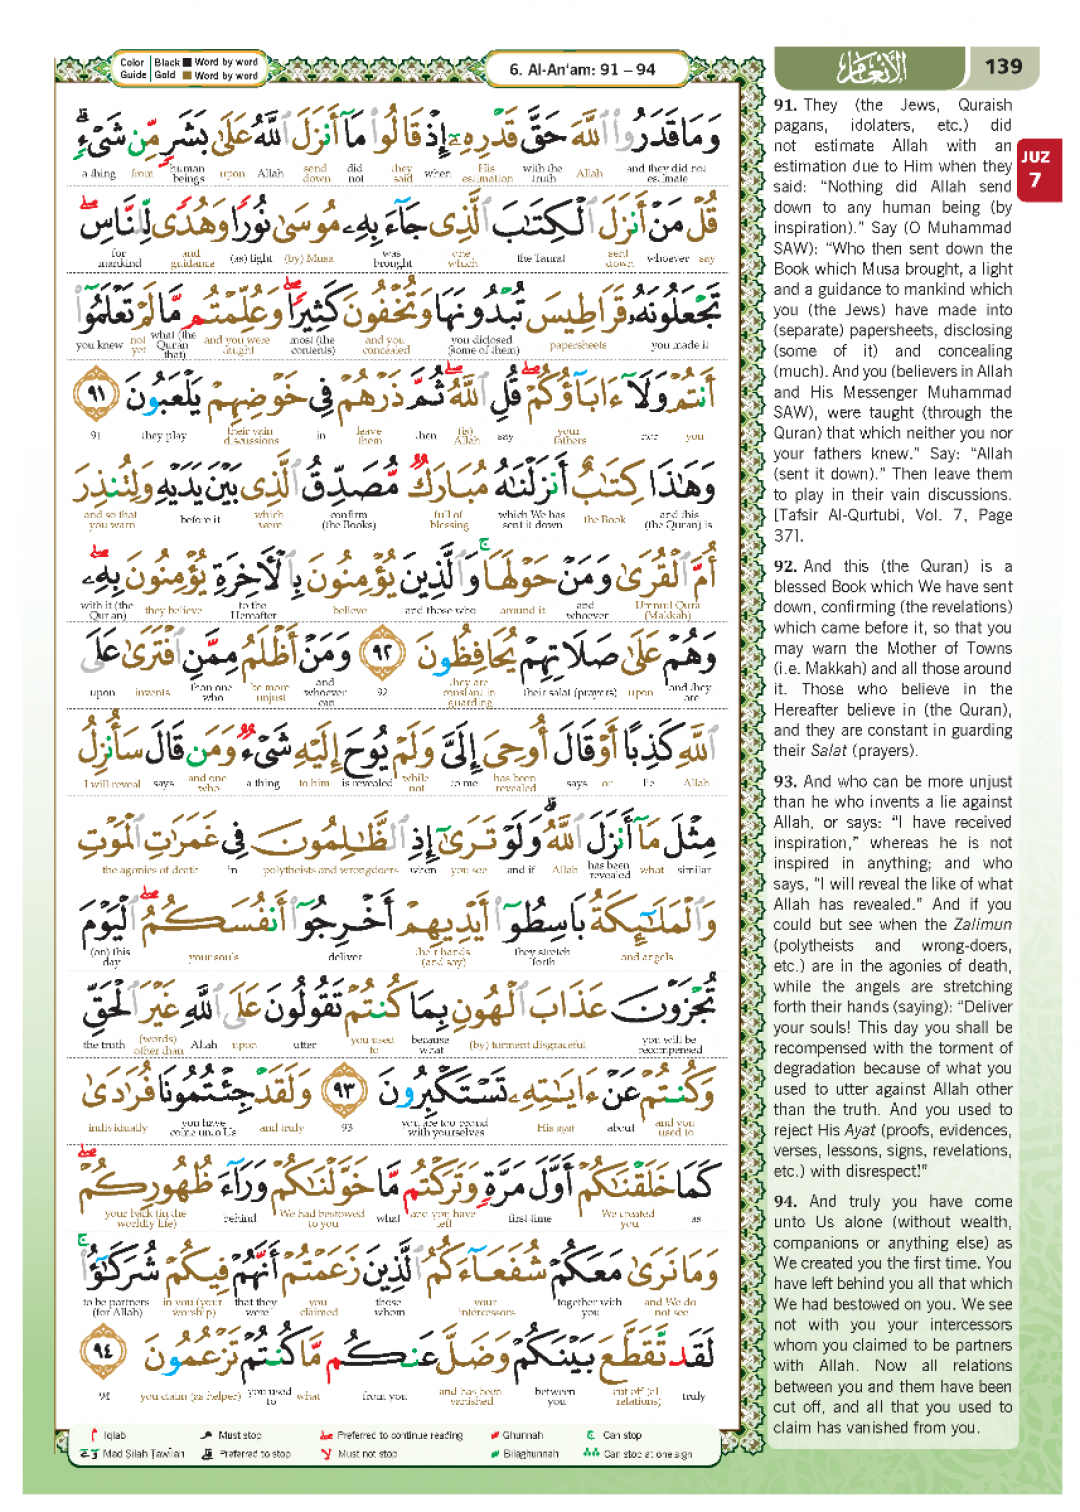 Color Guide
Black Word by word
Gold Word by word
6. Al-An'am: 91 – 94
الأنعام
139
JUZ
7
وَمَا قَدَرُوا۟ ٱللَّهَ حَقَّ قَدْرِهِۦٓ إِذْ قَالُوا۟ مَآ أَنزَلَ ٱللَّهُ عَلَىٰ بَشَرٍ مِّن شَىْءٍ ۗ
a thing from human beings upon Allah send down did not they said when His estimation with the truth Allah and they did not estimate
قُلْ مَنْ أَنزَلَ ٱلْكِتَـٰبَ ٱلَّذِى جَآءَ بِهِۦ مُوسَىٰ نُورًا وَهُدًى لِّلنَّاسِ ۖ
for mankind and guidance (as) light (by) Musa was brought one which the Taurat sent down whoever say
تَجْعَلُونَهُۥ قَرَاطِيسَ تُبْدُونَهَا وَتُخْفُونَ كَثِيرًا ۖ وَعُلِّمْتُم مَّا لَمْ تَعْلَمُوٓا۟
you knew not yet what (the Quran that) and you were taught most (the contents) and you concealed you diclosed (some of them) papersheets you made it
أَنتُمْ وَلَآ ءَابَآؤُكُمْ ۖ قُلِ ٱللَّهُ ۖ ثُمَّ ذَرْهُمْ فِى خَوْضِهِمْ يَلْعَبُونَ ٩١
91 they play their vain discussions in leave them then (is) Allah say your fathers nor you
وَهَـٰذَا كِتَـٰبٌ أَنزَلْنَـٰهُ مُبَارَكٌ مُّصَدِّقُ ٱلَّذِى بَيْنَ يَدَيْهِ وَلِتُنذِرَ
and so that you warn before it which were confirm (the Books) full of blessing which We has sent it down the Book and this (the Quran) is
أُمَّ ٱلْقُرَىٰ وَمَنْ حَوْلَهَا ۚ وَٱلَّذِينَ يُؤْمِنُونَ بِٱلْـَٔاخِرَةِ يُؤْمِنُونَ بِهِۦ ۖ
with it (the Quran) they believe to the Hereafter believe and those who around it and whoever Ummul Qura (Makkah)
وَهُمْ عَلَىٰ صَلَاتِهِمْ يُحَافِظُونَ ٩٢ وَمَنْ أَظْلَمُ مِمَّنِ ٱفْتَرَىٰ عَلَى
upon invents than one who be more unjust and whoever can 92 they are constant in guarding their salat (prayers) upon and they are
ٱللَّهِ كَذِبًا أَوْ قَالَ أُوحِىَ إِلَىَّ وَلَمْ يُوحَ إِلَيْهِ شَىْءٌ وَمَن قَالَ سَأُنزِلُ
I will reveal says and one who a thing to him is revealed while not to me has been revealed says or lie Allah
مِثْلَ مَآ أَنزَلَ ٱللَّهُ ۗ وَلَوْ تَرَىٰٓ إِذِ ٱلظَّـٰلِمُونَ فِى غَمَرَٰتِ ٱلْمَوْتِ
the agonies of death in polytheists and wrongdoers when you see and if Allah has been revealed what similar
وَٱلْمَلَـٰٓئِكَةُ بَاسِطُوٓا۟ أَيْدِيهِمْ أَخْرِجُوٓا۟ أَنفُسَكُمُ ۖ ٱلْيَوْمَ
(on) this day your souls deliver their hands (and say) they stretch forth and angels
تُجْزَوْنَ عَذَابَ ٱلْهُونِ بِمَا كُنتُمْ تَقُولُونَ عَلَى ٱللَّهِ غَيْرَ ٱلْحَقِّ
the truth (words) other than Allah upon utter you used to because what (by) torment disgraceful you will be recompensed
وَكُنتُمْ عَنْ ءَايَـٰتِهِۦ تَسْتَكْبِرُونَ ٩٣ وَلَقَدْ جِئْتُمُونَا فُرَٰدَىٰ
individually you have come unto Us and truly 93 you are too proud with yourselves His ayat about and you used to
كَمَا خَلَقْنَـٰكُمْ أَوَّلَ مَرَّةٍ وَتَرَكْتُم مَّا خَوَّلْنَـٰكُمْ وَرَآءَ ظُهُورِكُمْ ۖ
your back (in the worldly life) behind We had bestowed to you what and you have left first time We created you as
وَمَا نَرَىٰ مَعَكُمْ شُفَعَآءَكُمُ ٱلَّذِينَ زَعَمْتُمْ أَنَّهُمْ فِيكُمْ شُرَكَـٰٓؤُا۟ ۚ
to be partners (for Allah) in you (your worship) that they were you claimed those whom your intercessors together with you and We do not see
لَقَد تَّقَطَّعَ بَيْنَكُمْ وَضَلَّ عَنكُم مَّا كُنتُمْ تَزْعُمُونَ ٩٤
94 you claim (as helper) you used to what from you and has been vanished between you cut off (all relations) truly
Iqlab Must stop Preferred to continue reading Ghunnah Can stop
Mad Silah Tawilah Preferred to stop Must not stop Bilaghunnah Can stop at one sign
91. They (the Jews, Quraish
pagans, idolaters, etc.) did
not estimate Allah with an
estimation due to Him when they
said: “Nothing did Allah send
down to any human being (by
inspiration).” Say (O Muhammad
SAW): “Who then sent down the
Book which Musa brought, a light
and a guidance to mankind which
you (the Jews) have made into
(separate) papersheets, disclosing
(some of it) and concealing
(much). And you (believers in Allah
and His Messenger Muhammad
SAW), were taught (through the
Quran) that which neither you nor
your fathers knew.” Say: “Allah
(sent it down).” Then leave them
to play in their vain discussions.
[Tafsir Al-Qurtubi, Vol. 7, Page
37].
92. And this (the Quran) is a
blessed Book which We have sent
down, confirming (the revelations)
which came before it, so that you
may warn the Mother of Towns
(i.e. Makkah) and all those around
it. Those who believe in the
Hereafter believe in (the Quran),
and they are constant in guarding
their Salat (prayers).
93. And who can be more unjust
than he who invents a lie against
Allah, or says: “I have received
inspiration,” whereas he is not
inspired in anything; and who
says, “I will reveal the like of what
Allah has revealed.” And if you
could but see when the Zalimun
(polytheists and wrong-doers,
etc.) are in the agonies of death,
while the angels are stretching
forth their hands (saying): “Deliver
your souls! This day you shall be
recompensed with the torment of
degradation because of what you
used to utter against Allah other
than the truth. And you used to
reject His Ayat (proofs, evidences,
verses, lessons, signs, revelations,
etc.) with disrespect!”
94. And truly you have come
unto Us alone (without wealth,
companions or anything else) as
We created you the first time. You
have left behind you all that which
We had bestowed on you. We see
not with you your intercessors
whom you claimed to be partners
with Allah. Now all relations
between you and them have been
cut off, and all that you used to
claim has vanished from you.